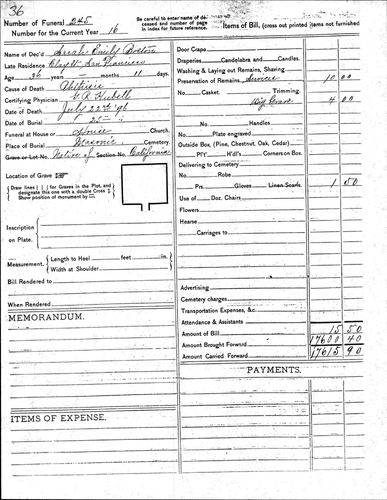 36
Number of Funeral 245
Number for the Current Year 16
Be careful to enter name of deceased and number of page in index for future reference.
Items of Bill, (cross out printed items not furnished
Name of Dec'd
Late Residence Clay St. San Francisco
Age 36 years — months 11 days.
Cause of Death Phthisis
Certifying Physician
Date of Death July 22nd 96
Date of Burial 25th
Funeral at House or House Church.
Place of Burial Masonic Cemetery.
Grave or Lot No. Native of Section No. California
Location of Grave
Draw lines | | for Graves in the Plot, and designate this one with a double Cross
Show position of monument by
Inscription
on Plate.
Measurement, Length to Heel feet in
Width at Shoulder
Bill Rendered to
When Rendered
MEMORANDUM.
ITEMS OF EXPENSE.
Door Crape
Draperies Candelabra and Candles.
Washing & Laying out Remains, Shaving
Preservation of Remains Services 10 00
No. Casket, Trimming.
Dig Grave 4 00
No. Handles
No. Plate engraved
Outside Box, (Pine, Chestnut, Oak, Cedar)
PIY H'dl's Corners on Box.
Delivering to Cemetery
No. Robe
Prs. Gloves Linen Scarfs. 1 50
Use of Doz. Chairs
Flowers
Hearse
Carriages to
Advertising
Cemetery charges
Transportation Expenses, &c
Attendance & Assistants
Amount of Bill 15 50
Amount Brought Forward 17600 40
Amount Carried Forward 17615 90
PAYMENTS.